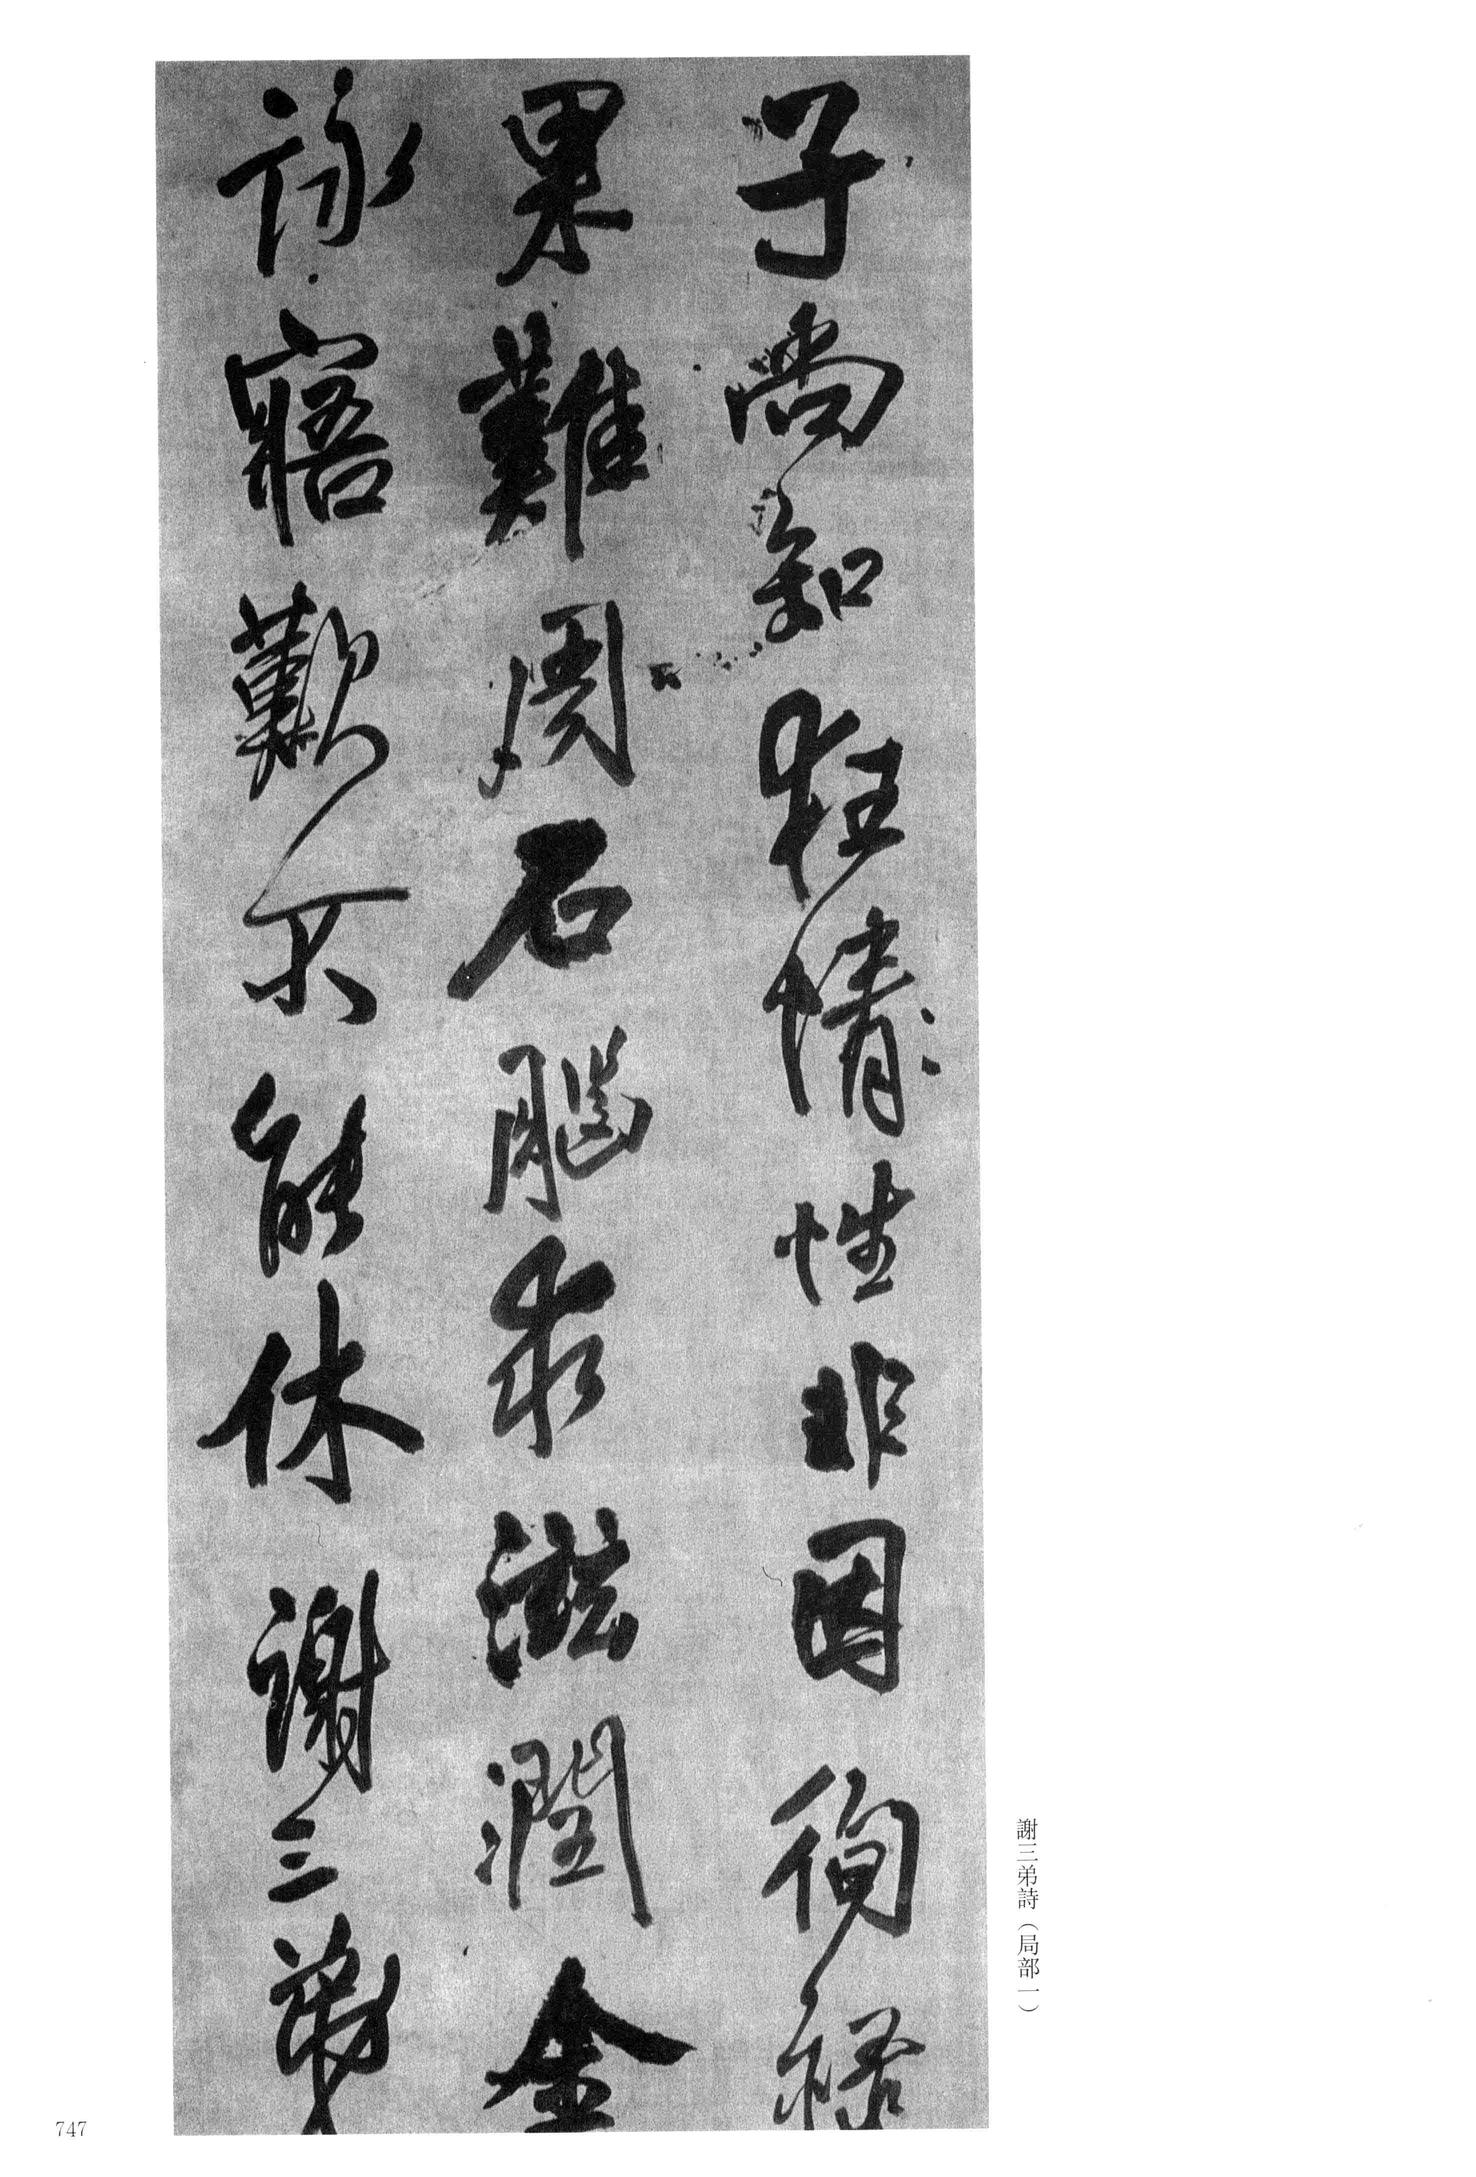 子尚知狂情性非因徇祿
果難周石腦求滋潤金
詠寤歎不能休謝三弟
謝三弟詩（局部一）
747